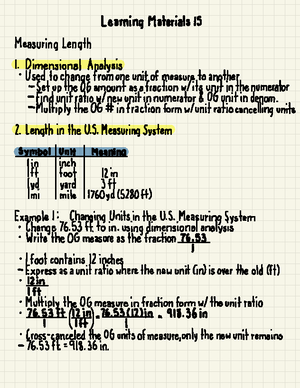 Learning Materials 15
Measuring Length
1. Dimensional Analysis
• Used to change from one unit of measure to another
– Set up the OG amount as a fraction w/ its unit in the numerator
– Find unit ratio w/ new unit in numerator & OG unit in denom.
– Multiply the OG # in fraction form w/ unit ratio cancelling units
2. Length in the U.S. Measuring System
Symbol Unit Meaning
1 in inch
1 ft foot 12 in
1 yd yard 3 ft
1 mi mile 1760 yd (5280 ft)
Example 1: Changing Units in the U.S. Measuring System
• Change 76.53 ft to in. using dimensional analysis
• Write the OG measure as the fraction 76.53
1
• 1 foot contains 12 inches
– Express as a unit ratio where the new unit (in) is over the old (ft)
• 12 in
1 ft
• Multiply the OG measure in fraction form w/ the unit ratio
• 76.53 ft (12 in) = 76.53(12) in = 918.36 in
1 (1 ft) 1
• Cross-canceled the OG units of measure, only the new unit remains
– 76.53 ft = 918.36 in.